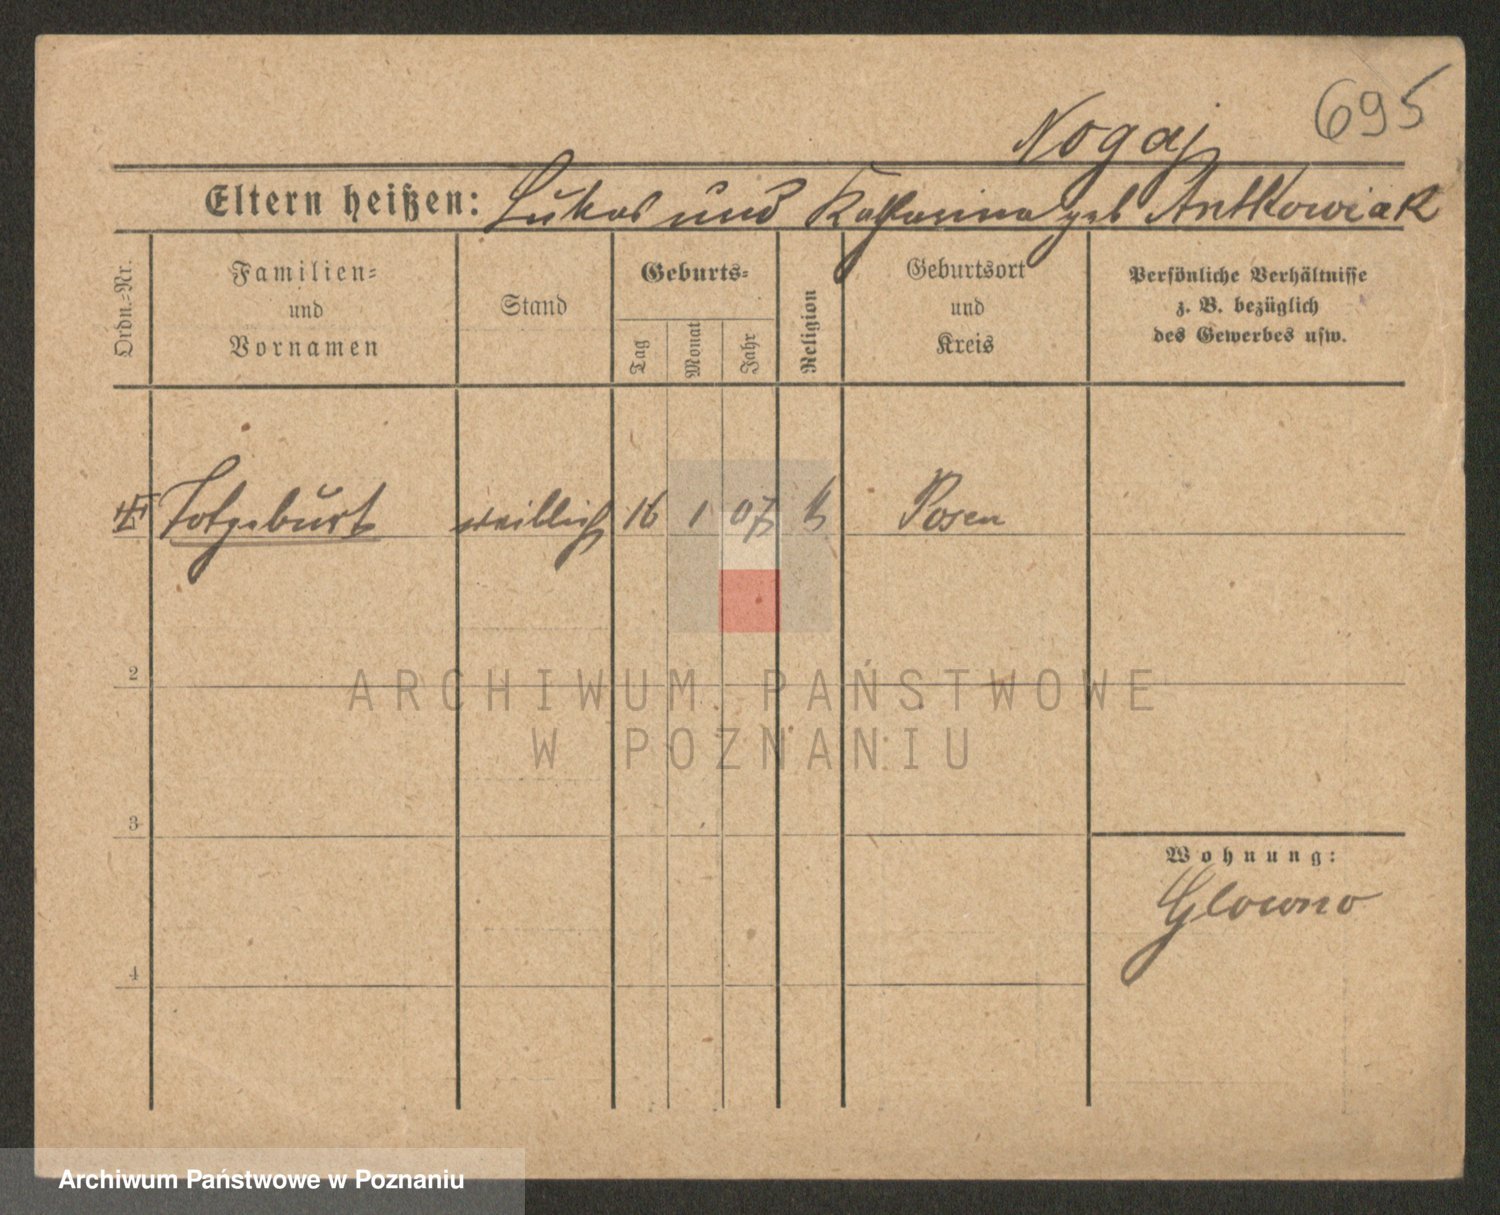 695
Nogaj
Eltern heißen: Lukas und Katharina geb Antkowiak
Ordn.=Nr.
Familien=
und
Vornamen
Stand
Geburts=
Tag
Monat
Jahr
Religion
Geburtsort
und
Kreis
Persönliche Verhältnisse
z. B. bezüglich
des Gewerbes usw.
Totgeburt weiblich 16 1 07 k Posen
2
ARCHIWUM PAŃSTWOWE
W POZNANIU
3
Wohnung:
Glowno
4
Archiwum Państwowe w Poznaniu